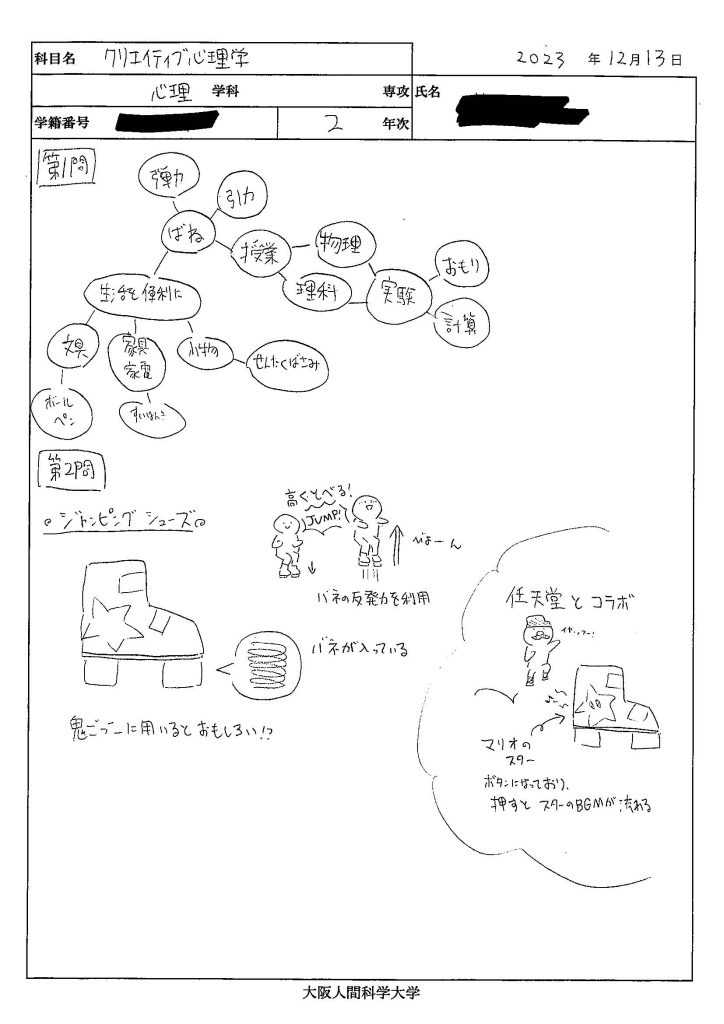 科目名 クリエイティブ心理学
2023 年 12月 13日
心理 学科 専攻
氏名
学籍番号 2 年次
第1問
弾力
引力
ばね
授業
物理
理科
実験
おもり
計算
生活を便利に
文具
家具
家電
小物
せんたくばさみ
ボール
ペン
すいはんき
第2問
ジャンピングシューズ
高くとべる!
JUMP!
びよーん
バネの反発力を利用
バネが入っている
鬼ごっこに用いるとおもしろい!?
任天堂とコラボ
イヤッフー!
マリオの
スター
ボタンになっており、
押すとスターのBGMが流れる
大阪人間科学大学